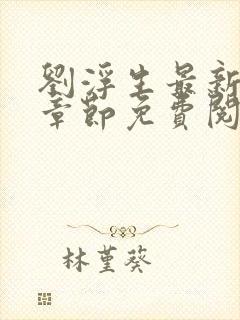 劉浮生最新
章節免費閱
林堇葵